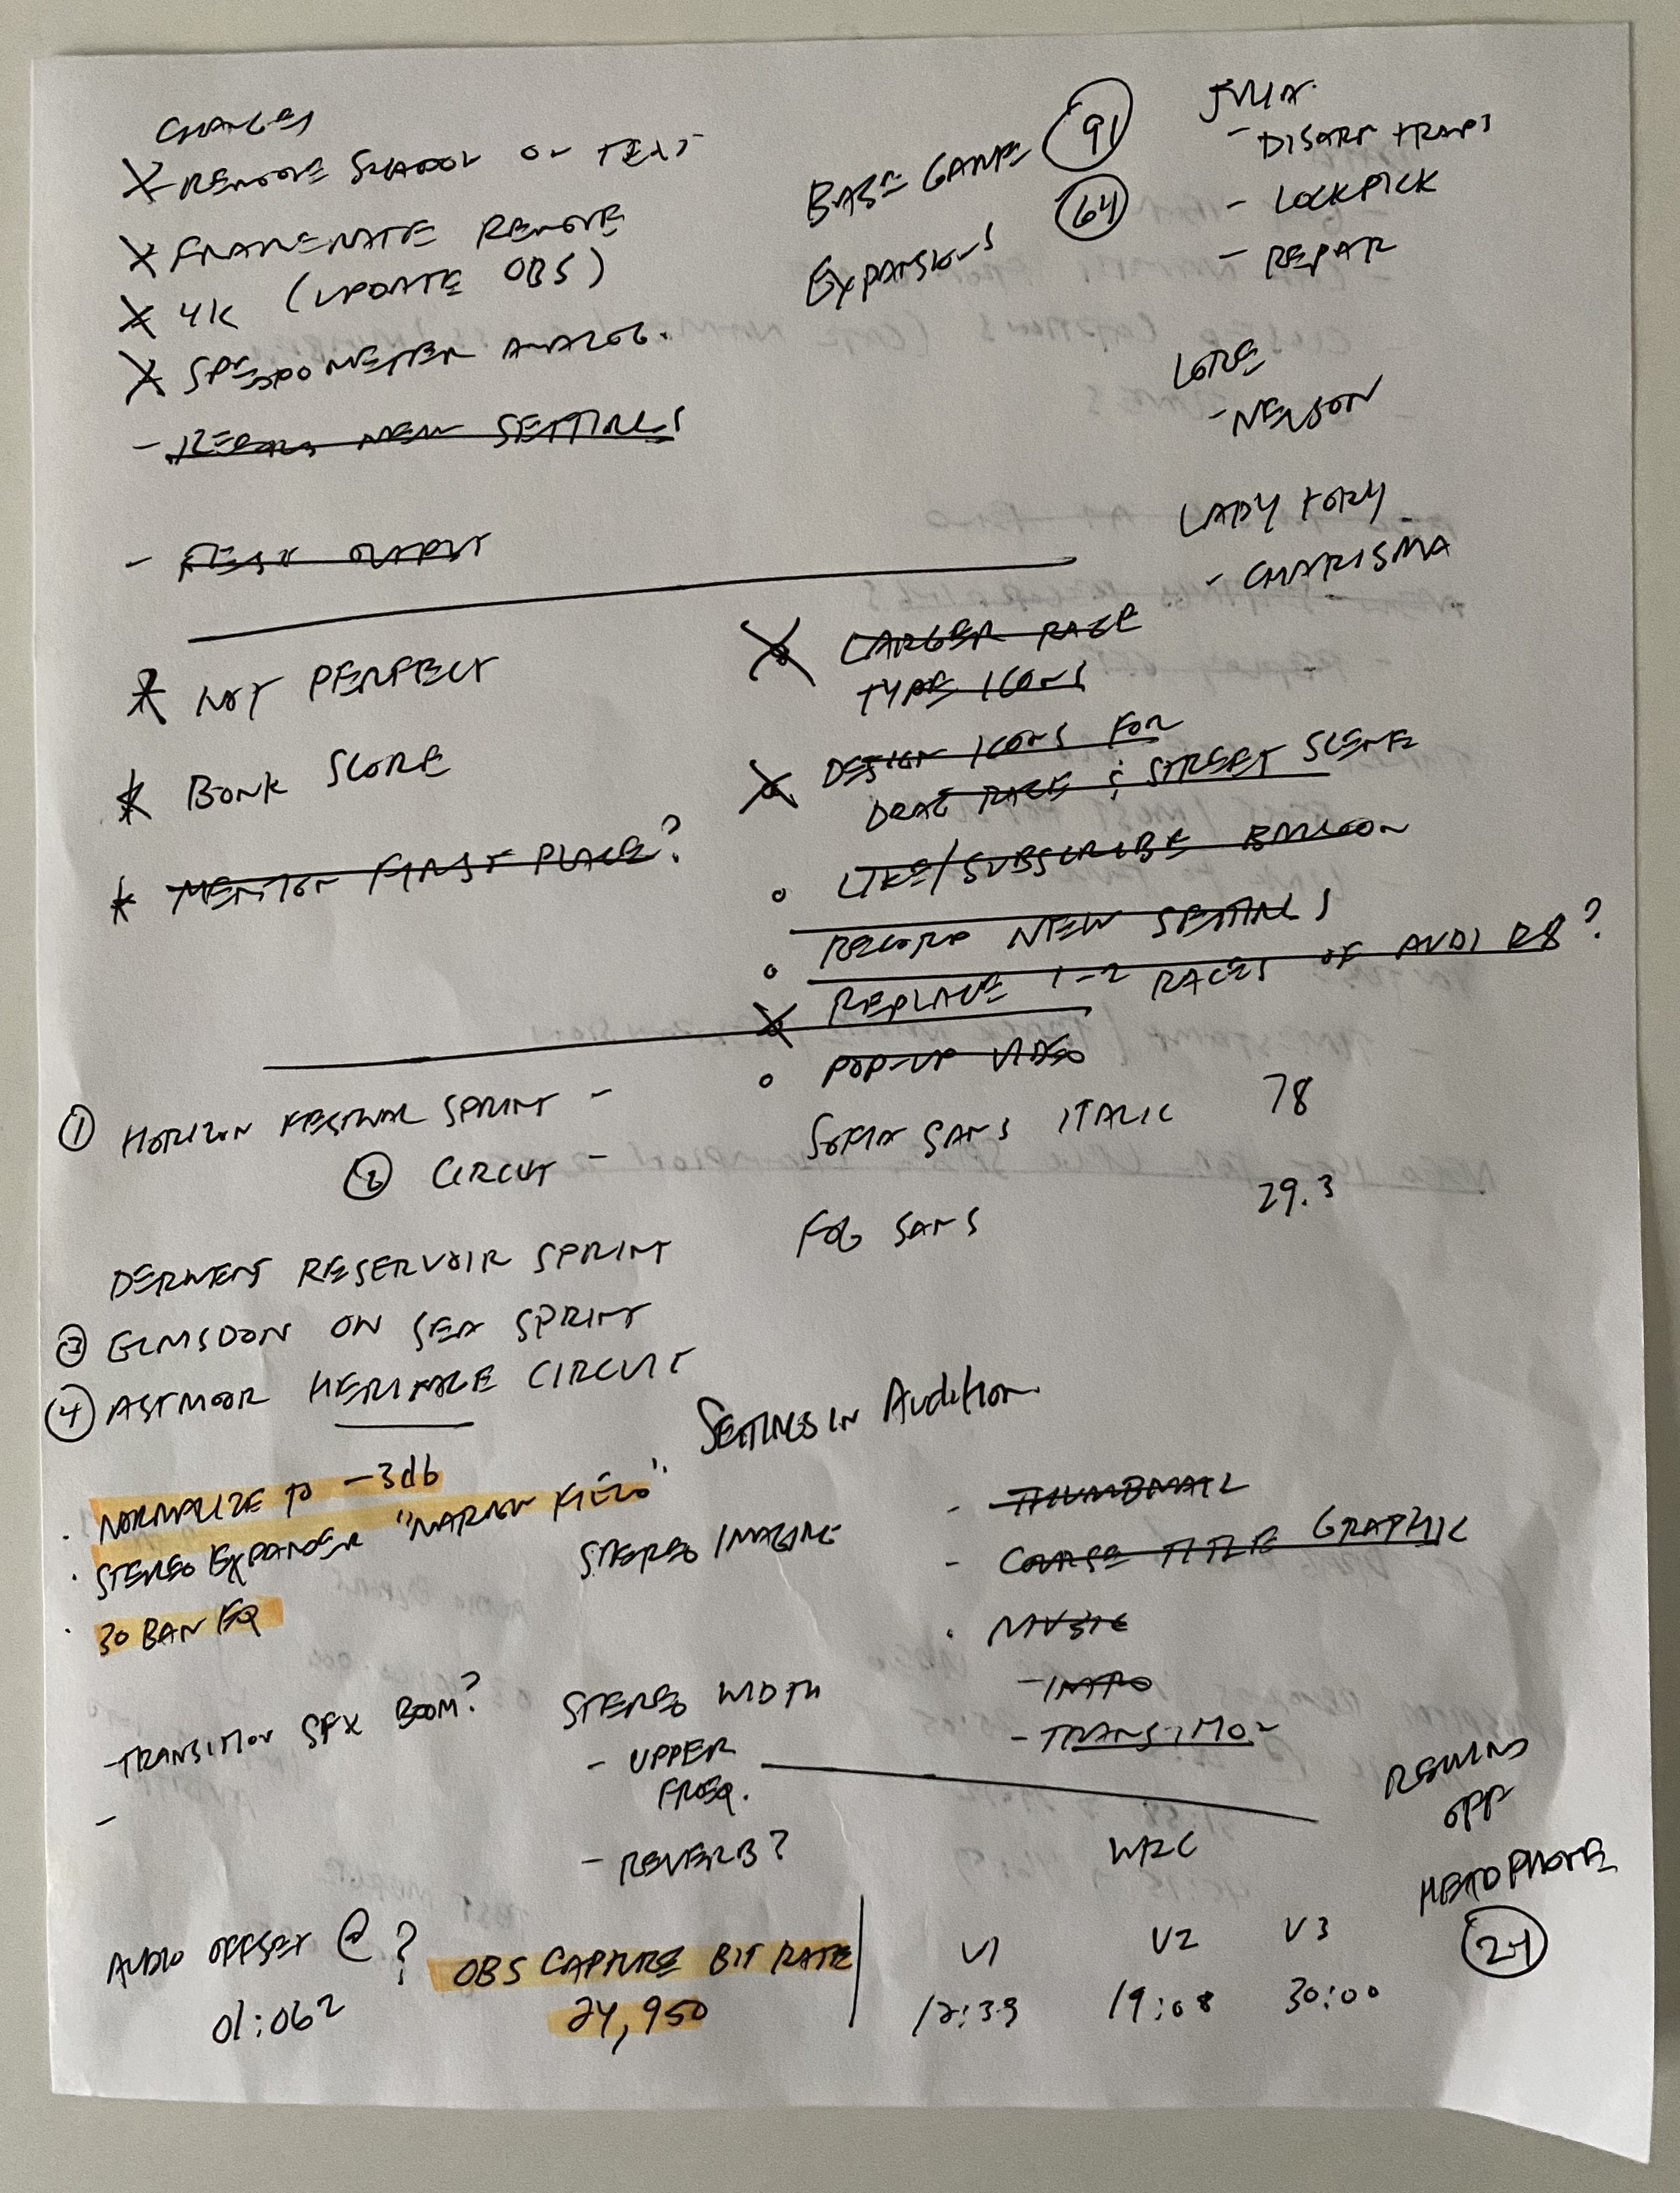 CHANGES
X REMOVE SHADOW ON TEXT
X FRAMERATE REMOVE
X 4K (UPDATE OBS)
X SPEEDOMETER ANALOG.
- NEW SETTINGS
- OUTPUT
BASE GAME 91
EXPANSIONS 64
JULIA
- DISARM TRAPS
- LOCKPICK
- REPAIR
LORE
- NELSON
LADY TORY
- CHARISMA
* NOT PERFECT
* BONK SCORE
* MENTION FIRST PLACE?
X LARGER RACE
TYPE ICONS
X DESIGN ICONS FOR
DRAG RACE & STREET SCENE
o LIKE/SUBSCRIBE
o RECORD NEW SETTINGS
X REPLACE 1-2 RACES OF AUDI R8?
o POP-UP VIDEO
① HORIZON FESTIVAL SPRINT -
② CIRCUT -
DERWENT RESERVOIR SPRINT
③ ELMSDON ON SEA SPRINT
④ ASTMOOR HERITAGE CIRCUIT
SOFIA SANS ITALIC 78
FOG SANS 29.3
SETTINGS IN Audition
· NORMALIZE TO -3db
· STEREO EXPANDER "NARROW FIELD"
STEREO IMAGING
· 30 BAN EQ
- THUMBNAIL
- COURSE TITLE GRAPHIC
· MUSIC
- INTRO
- TRANSITION
- TRANSITION SFX BOOM?
-
STEREO WIDTH
- UPPER
FREQ.
- REVERB?
AUDIO OFFSET @ ?
01:062
OBS CAPTURE BIT RATE
24,950
WRC
V1 V2 V3
12:39 19:08 30:00
OFF
HEADPHONE
24